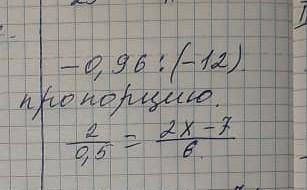 -0,96:(-12)
пропорцию.
2/0,5 = 2x-7/6.